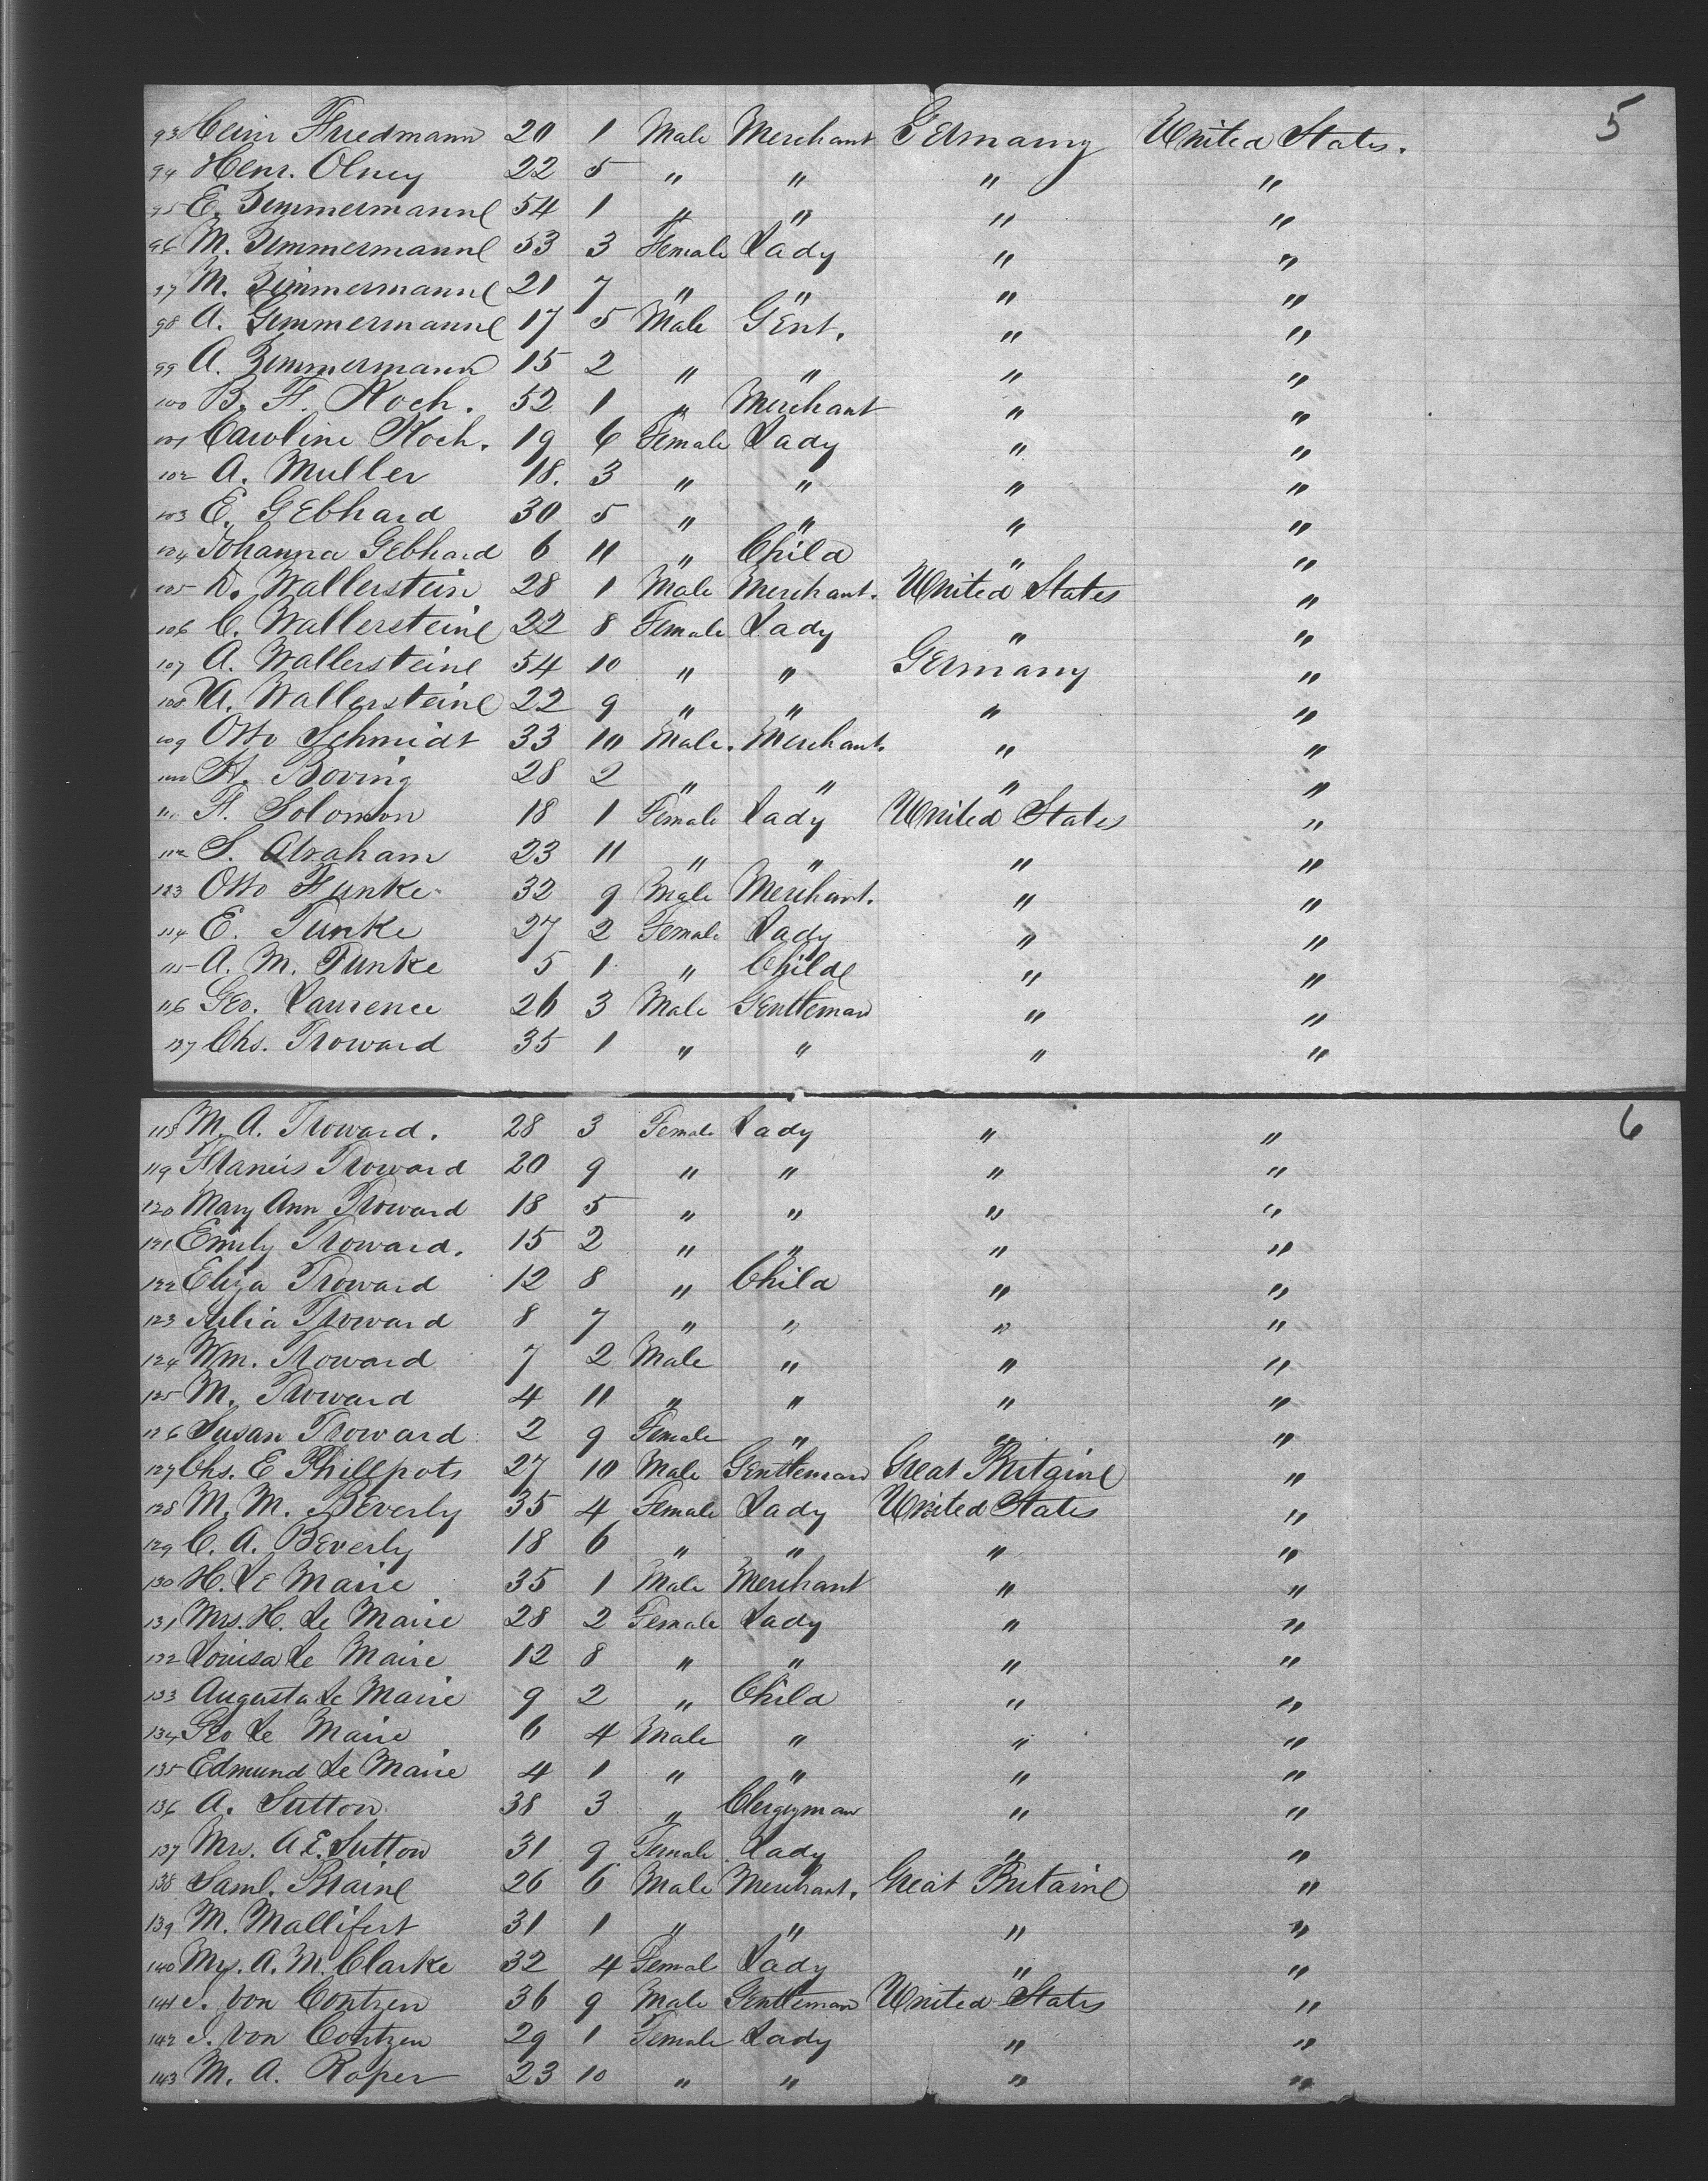 5
93 Heinr Friedmann 20 1 Male Merchant Germany United States.
94 Henr. Olney 22 5 " " " "
95 E. Zimmermanne 54 1 " " " "
96 M. Zimmermanne 53 3 Female Lady " "
97 M. Zimmermanne 21 7 " " " "
98 A. Zimmermanne 17 5 Male Gent. " "
99 A. Zimmermann 15 2 " " " "
100 B. F. Koch. 52 1 " Merchant " "
101 Caroline Koch. 19 6 Female Lady " "
102 A. Muller 18. 3 " " " "
103 E. Gebhard 30 5 " " " "
104 Johanna Gebhard 6 11 " Child " "
105 D. Wallerstein 28 1 Male Merchant. United States "
106 C. Wallersteine 22 8 Female Lady " "
107 A. Wallersteine 54 10 " " Germany "
108 A. Wallersteine 22 9 " " " "
109 Otto Schmidt 33 10 Male. Merchant. " "
110 H. Boving 28 2 " " " "
111 F. Solomon 18 1 Female Lady United States "
112 S. Abraham 23 11 " " " "
113 Otto Funke 32 9 Male Merchant. " "
114 E. Funke 27 2 Female Lady " "
115 A. M. Funke 5 1 " Childe " "
116 Geo. Laurence 26 3 Male Gentleman " "
117 Chs. Troward 35 1 " " " "
6
118 M. A. Troward. 28 3 Female Lady " "
119 Francis Troward 20 9 " " " "
120 Mary Ann Troward 18 5 " " " "
121 Emily Troward. 15 2 " " " "
122 Eliza Troward 12 8 " Child " "
123 Julia Troward 8 7 " " " "
124 Wm. Troward 7 2 Male " " "
125 M. Troward 4 11 " " " "
126 Susan Troward 2 9 Female " " "
127 Chs. E Phillpots 27 10 Male Gentleman Great Britaine "
128 M. M. Beverly 35 4 Female Lady United States "
129 C. A. Beverly 18 6 " " " "
130 H. Le Maire 35 1 Male Merchant " "
131 Mrs. H. Le Maire 28 2 Female Lady " "
132 Louisa Le Maire 12 8 " " " "
133 Augusta Le Maire 9 2 " Child " "
134 Geo Le Maire 6 4 Male " " "
135 Edmund Le Maire 4 1 " " " "
136 A. Sutton 38 3 " Clergyman " "
137 Mrs. A E. Sutton 31 9 Female Lady " "
138 Saml. Braine 26 6 Male Merchant. Great Britaine "
139 M. Mallifert 31 1 " " " "
140 Mrs. A. M. Clarke 32 4 Femal Lady " "
141 J. Von Contzen 36 9 Male Gentleman United States "
142 J. Von Contzen 29 1 Female Lady " "
143 M. A. Roper 23 10 " " " "